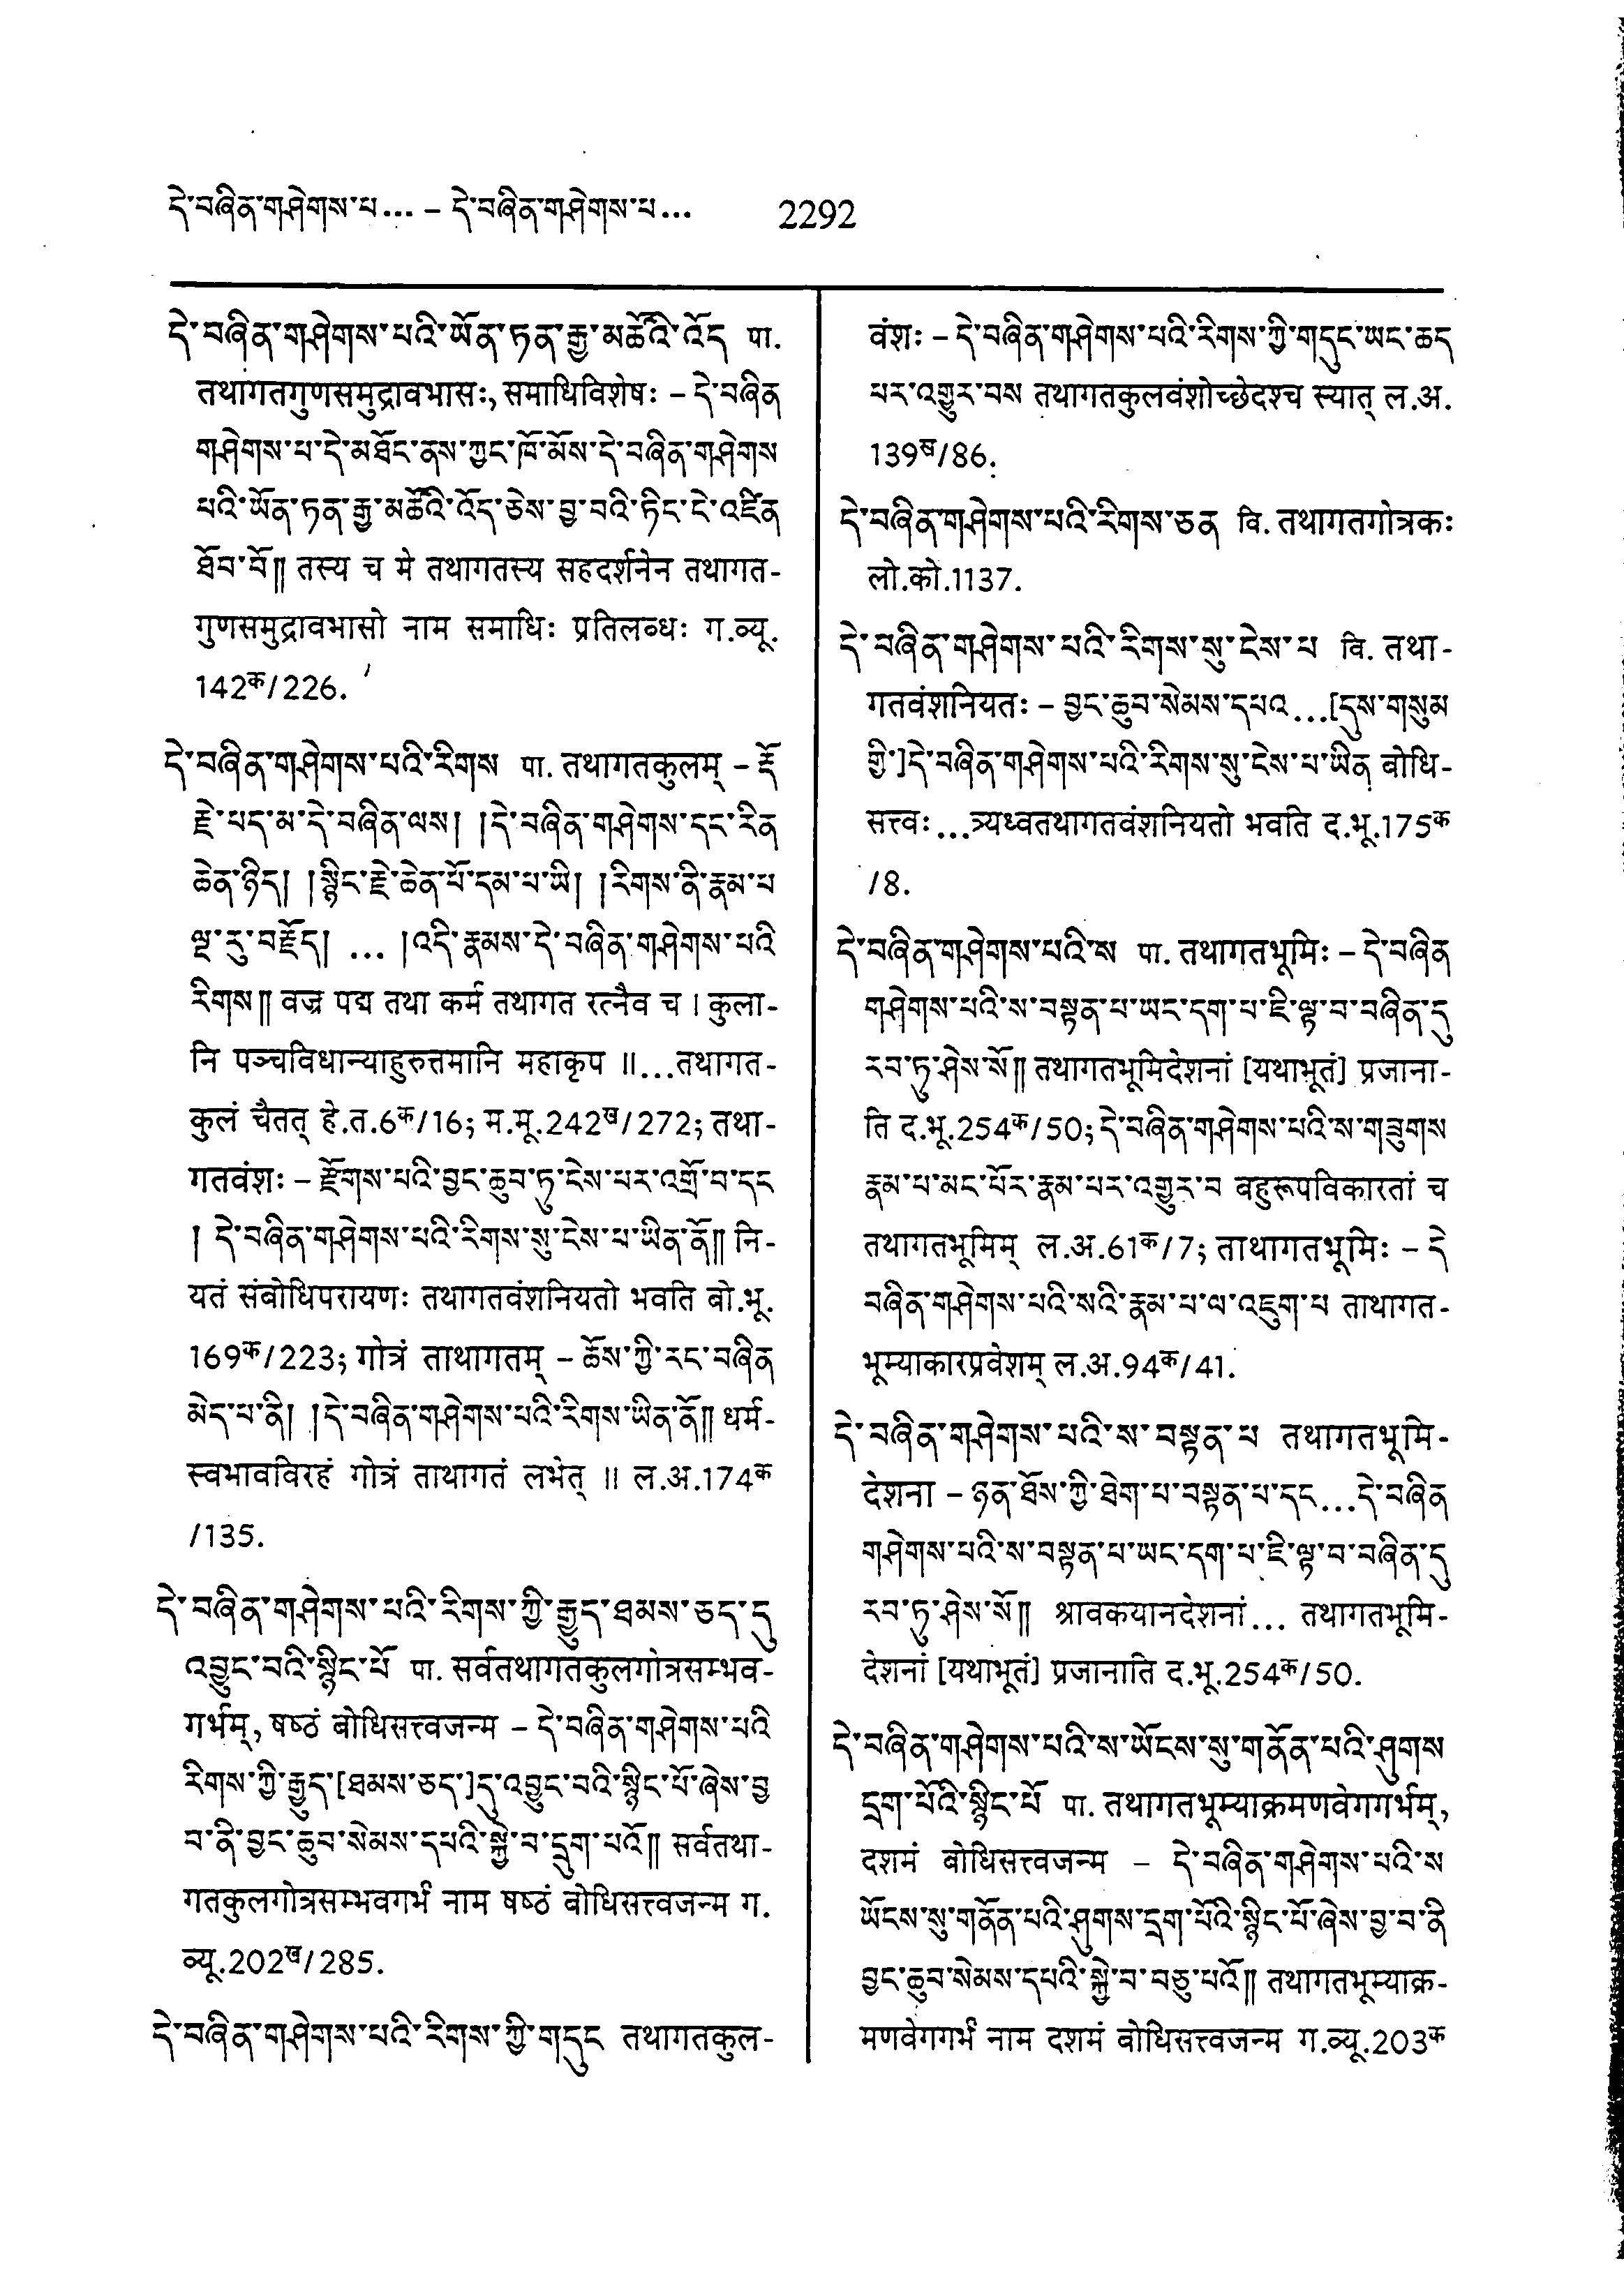 དེ་བཞིན་གཤེགས་པ... – དེ་བཞིན་གཤེགས་པ... 2292
དེ་བཞིན་གཤེགས་པའི་ཡོན་ཏན་རྒྱ་མཚོའི་འོད पा.
तथागतगुणसमुद्रावभासः, समाधिविशेषः – དེ་བཞིན
གཤེགས་པ་དེ་མཐོང་ནས་ཀྱང་ཁོ་མོས་དེ་བཞིན་གཤེགས
པའི་ཡོན་ཏན་རྒྱ་མཚོའི་འོད་ཅེས་བྱ་བའི་ཏིང་ངེ་འཛིན
ཐོབ་བོ།། तस्य च मे तथागतस्य सहदर्शनेन तथागत-
गुणसमुद्रावभासो नाम समाधिः प्रतिलब्धः ग.व्यू.
142क/226.
དེ་བཞིན་གཤེགས་པའི་རིགས पा. तथागतकुलम् – རྡོ
རྗེ་པད་མ་དེ་བཞིན་ལས། །དེ་བཞིན་གཤེགས་དང་རིན
ཆེན་ཉིད། །སྙིང་རྗེ་ཆེན་པོ་དམ་པ་ཡི། །རིགས་ནི་རྣམ་པ
ལྔ་རུ་བརྗོད། ... །འདི་རྣམས་དེ་བཞིན་གཤེགས་པའི
རིགས།། वज्र पद्म तथा कर्म तथागत रत्नैव च । कुला-
नि पञ्चविधान्याहुरुत्तमानि महाकृप ॥...तथागत-
कुलं चैतत् हे.त.6क/16; म.मू.242ख/272; तथा-
गतवंशः – རྫོགས་པའི་བྱང་ཆུབ་ཏུ་ངེས་པར་འགྲོ་བ་དང
། དེ་བཞིན་གཤེགས་པའི་རིགས་སུ་ངེས་པ་ཡིན་ནོ།། नि-
यतं संबोधिपरायणः तथागतवंशनियतो भवति बो.भू.
169क/223; गोत्रं ताथागतम् – ཆོས་ཀྱི་རང་བཞིན
མེད་པ་ནི། །དེ་བཞིན་གཤེགས་པའི་རིགས་ཡིན་ནོ།། धर्म-
स्वभावविरहं गोत्रं ताथागतं लभेत् ॥ ल.अ.174क
/135.
དེ་བཞིན་གཤེགས་པའི་རིགས་ཀྱི་རྒྱུད་ཐམས་ཅད་དུ
འབྱུང་བའི་སྙིང་པོ पा. सर्वतथागतकुलगोत्रसम्भव-
गर्भम्, षष्ठं बोधिसत्त्वजन्म – དེ་བཞིན་གཤེགས་པའི
རིགས་ཀྱི་རྒྱུད་[ཐམས་ཅད་]དུ་འབྱུང་བའི་སྙིང་པོ་ཞེས་བྱ
བ་ནི་བྱང་ཆུབ་སེམས་དཔའི་སྐྱེ་བ་དྲུག་པའོ།། सर्वतथा-
गतकुलगोत्रसम्भवगर्भं नाम षष्ठं बोधिसत्त्वजन्म ग.
व्यू.202ख/285.
དེ་བཞིན་གཤེགས་པའི་རིགས་ཀྱི་གདུང तथागतकुल-
वंशः – དེ་བཞིན་གཤེགས་པའི་རིགས་ཀྱི་གདུང་ཡང་ཆད
པར་འགྱུར་བས तथागतकुलवंशोच्छेदश्च स्यात् ल.अ.
139ख/86.
དེ་བཞིན་གཤེགས་པའི་རིགས་ཅན वि. तथागतगोत्रकः
लो.को.1137.
དེ་བཞིན་གཤེགས་པའི་རིགས་སུ་ངེས་པ वि. तथा-
गतवंशनियतः – བྱང་ཆུབ་སེམས་དཔའ...[དུས་གསུམ
གྱི་]དེ་བཞིན་གཤེགས་པའི་རིགས་སུ་ངེས་པ་ཡིན बोधि-
सत्त्वः...त्र्यध्वतथागतवंशनियतो भवति द.भू.175क
/8.
དེ་བཞིན་གཤེགས་པའི་ས पा. तथागतभूमिः – དེ་བཞིན
གཤེགས་པའི་ས་བསྟན་པ་ཡང་དག་པ་ཇི་ལྟ་བ་བཞིན་དུ
རབ་ཏུ་ཤེས་སོ།། तथागतभूमिदेशनां [यथाभूतं] प्रजाना-
ति द.भू.254क/50; དེ་བཞིན་གཤེགས་པའི་ས་གཟུགས
རྣམ་པ་མང་པོར་རྣམ་པར་འགྱུར་བ बहुरूपविकारतां च
तथागतभूमिम् ल.अ.61क/7; ताथागतभूमिः – དེ
བཞིན་གཤེགས་པའི་སའི་རྣམ་པ་ལ་འཇུག་པ ताथागत-
भूम्याकारप्रवेशम् ल.अ.94क/41.
དེ་བཞིན་གཤེགས་པའི་ས་བསྟན་པ तथागतभूमि-
देशना – ཉན་ཐོས་ཀྱི་ཐེག་པ་བསྟན་པ་དང...དེ་བཞིན
གཤེགས་པའི་ས་བསྟན་པ་ཡང་དག་པ་ཇི་ལྟ་བ་བཞིན་དུ
རབ་ཏུ་ཤེས་སོ།། श्रावकयानदेशनां... तथागतभूमि-
देशनां [यथाभूतं] प्रजानाति द.भू.254क/50.
དེ་བཞིན་གཤེགས་པའི་ས་ཡོངས་སུ་གནོན་པའི་ཤུགས
དྲག་པོའི་སྙིང་པོ पा. तथागतभूम्याक्रमणवेगगर्भम्,
दशमं बोधिसत्त्वजन्म – དེ་བཞིན་གཤེགས་པའི་ས
ཡོངས་སུ་གནོན་པའི་ཤུགས་དྲག་པོའི་སྙིང་པོ་ཞེས་བྱ་བ་ནི
བྱང་ཆུབ་སེམས་དཔའི་སྐྱེ་བ་བཅུ་པའོ།། तथागतभूम्याक्र-
मणवेगगर्भं नाम दशमं बोधिसत्त्वजन्म ग.व्यू.203क